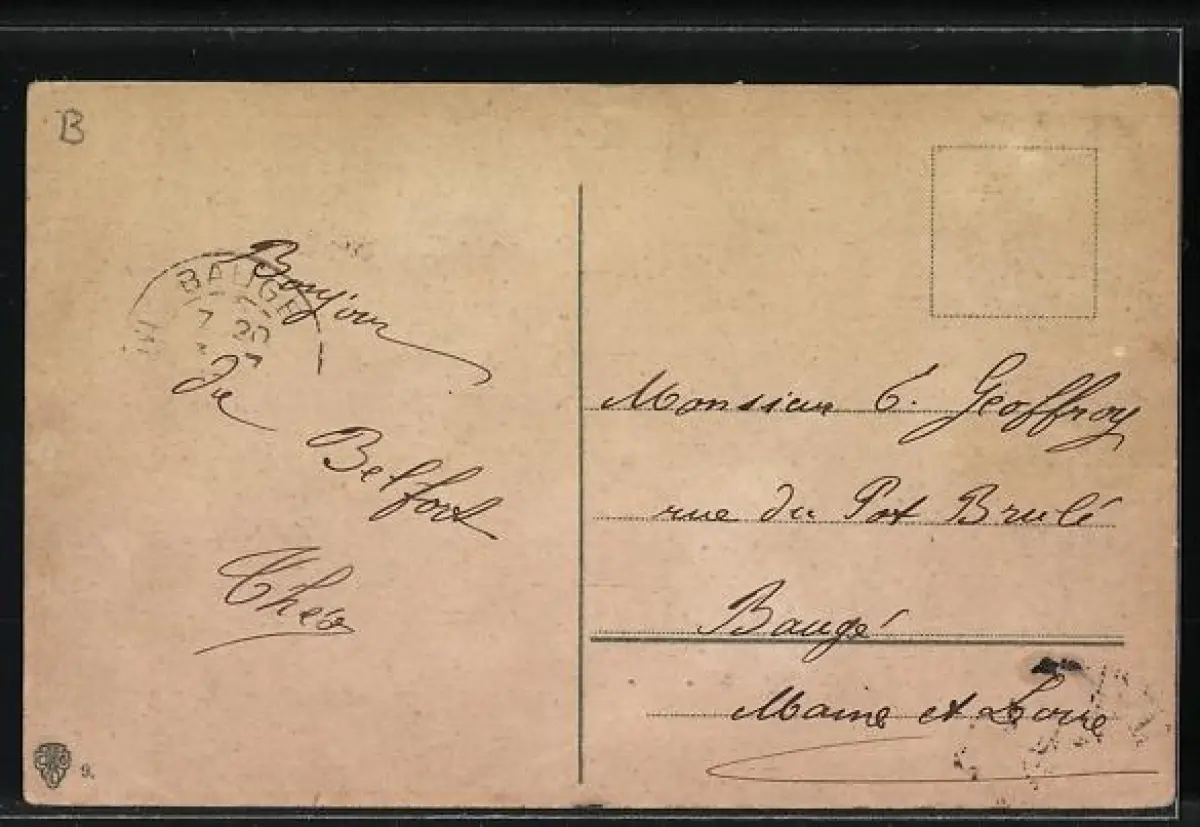 B
BAUGÉ
7 20
Bonjour
de
Belfort
Théo
Monsieur E. Geoffroy
rue du Pot Brulé
Baugé
Maine et Loire
9.